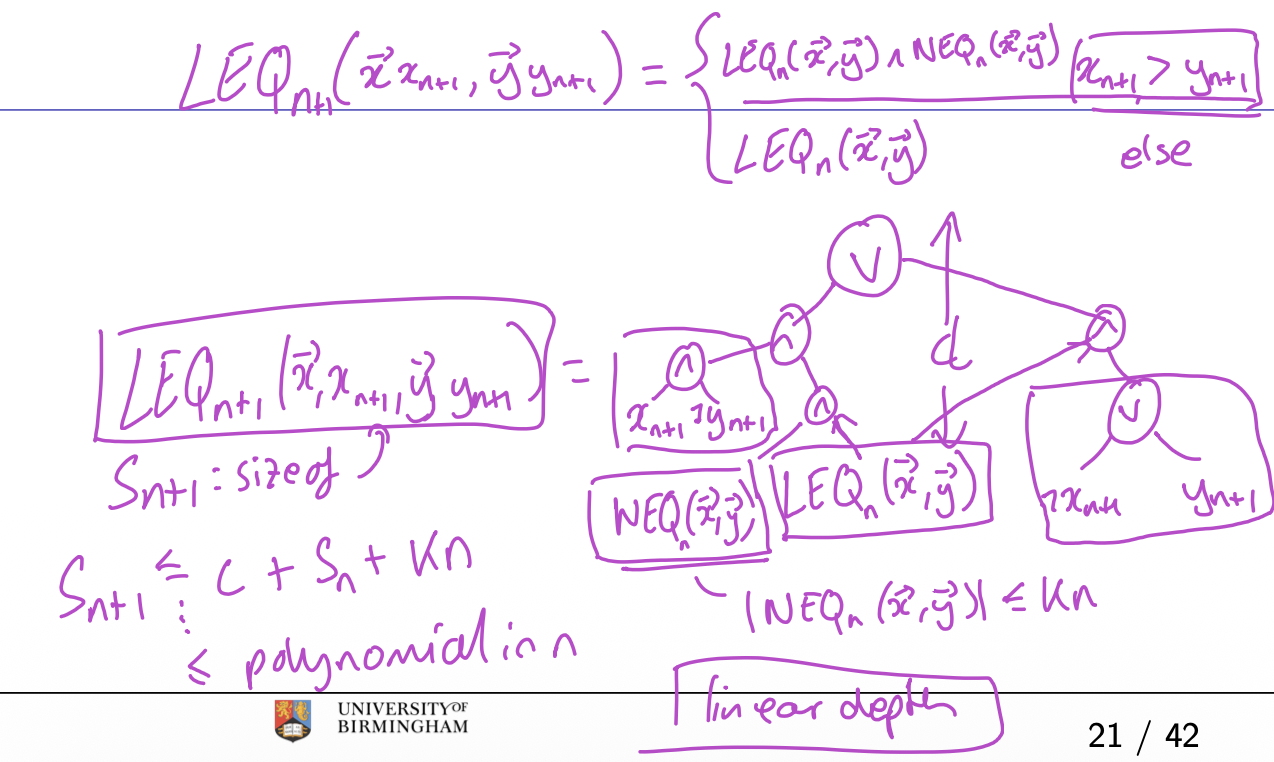 LEQₙ₊₁(x⃗ xₙ₊₁, y⃗ yₙ₊₁) = { LEQₙ(x⃗,y⃗) ∧ NEQₙ(x⃗,y⃗) xₙ₊₁ > yₙ₊₁
LEQₙ(x⃗,y⃗) else
∨
d
LEQₙ₊₁(x⃗, xₙ₊₁, y⃗ yₙ₊₁) = ∧ ∧ ∧
xₙ₊₁ ¬yₙ₊₁ ∧ ∨
Sₙ₊₁ : size of
NEQₙ(x⃗,y⃗) LEQₙ(x⃗,y⃗) ¬xₙ₊₁ yₙ₊₁
Sₙ₊₁ ≤ C + Sₙ + Kn
⋮
|NEQₙ(x⃗,y⃗)| ≤ Kn
≤ polynomial in n
linear depth
UNIVERSITY OF
BIRMINGHAM
21 / 42